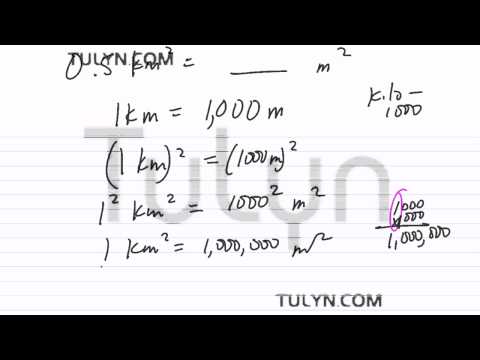 TULYN.COM
0.5 km² = ____ m²
1 km = 1,000 m
kilo - 1000
(1 km)² = (1000 m)²
1² km² = 1000² m²
1 km² = 1,000,000 m²
1000
x 1000
1,000,000
Tulyn
TULYN.COM